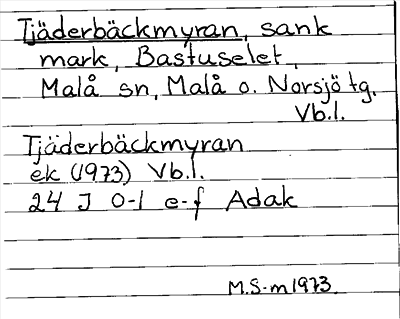 Tjäderbäckmyran, sank
mark, Bastuselet,
Malå sn, Malå o. Norsjö tg,
Vb.l.
Tjäderbäckmyran
ek (1973) Vb.l.
24 J 0-1 e-f Adak
M.S-m 1973.